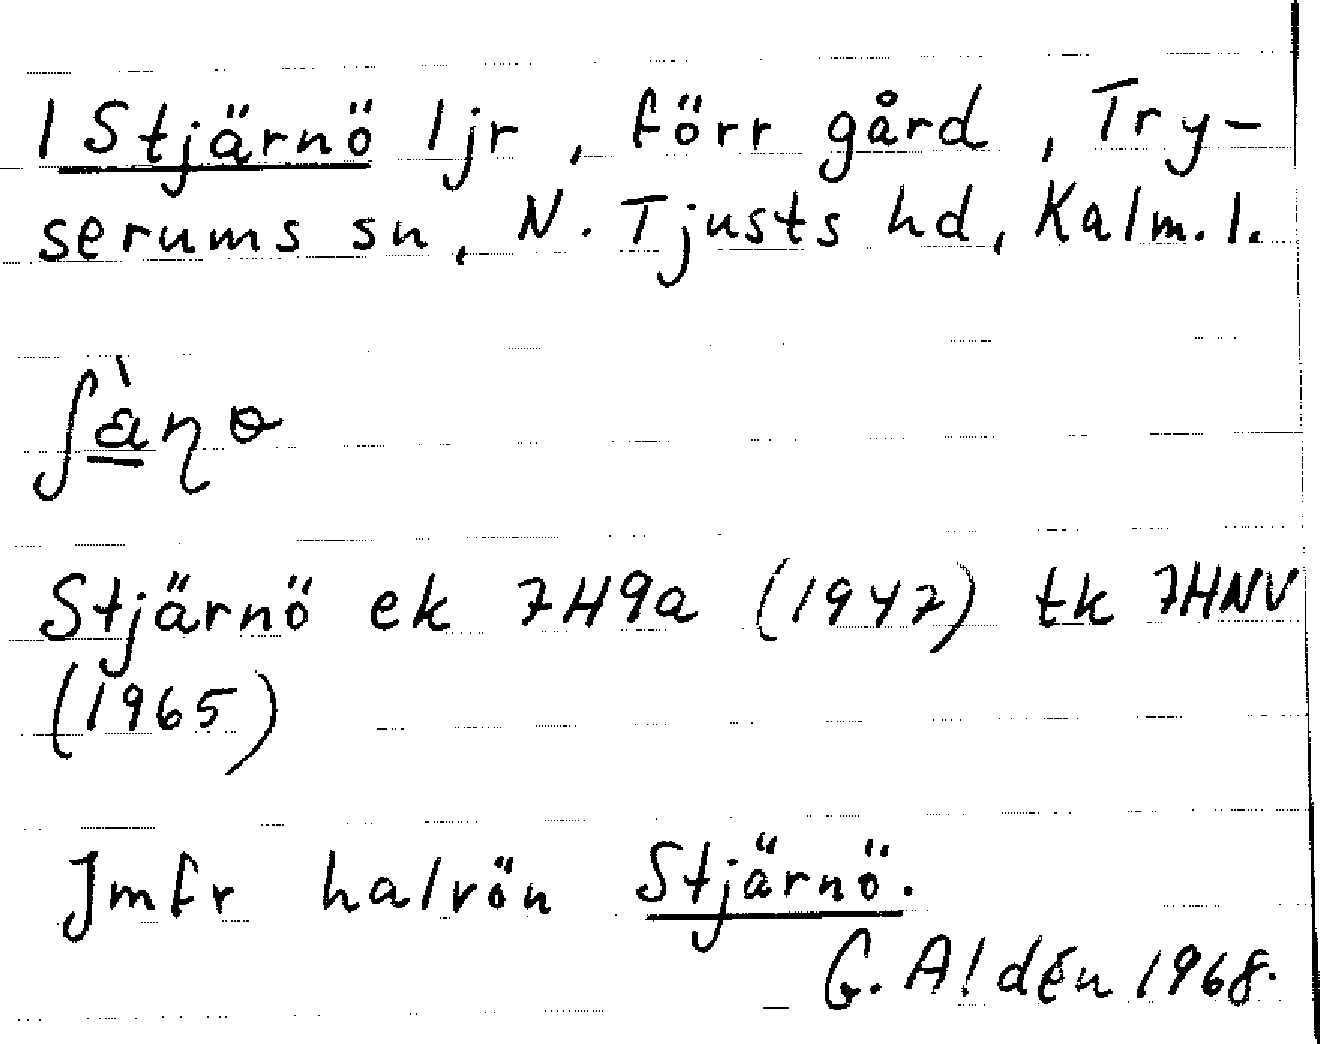 1 Stjärnö ljr, förr gård, Try-
serums sn, N. Tjusts hd, Kalm. l.
Stjärnö ek 7H9a (1947) tk 7HNV
(1965)
Jmfr halvön Stjärnö.
G. Aldén 1968.